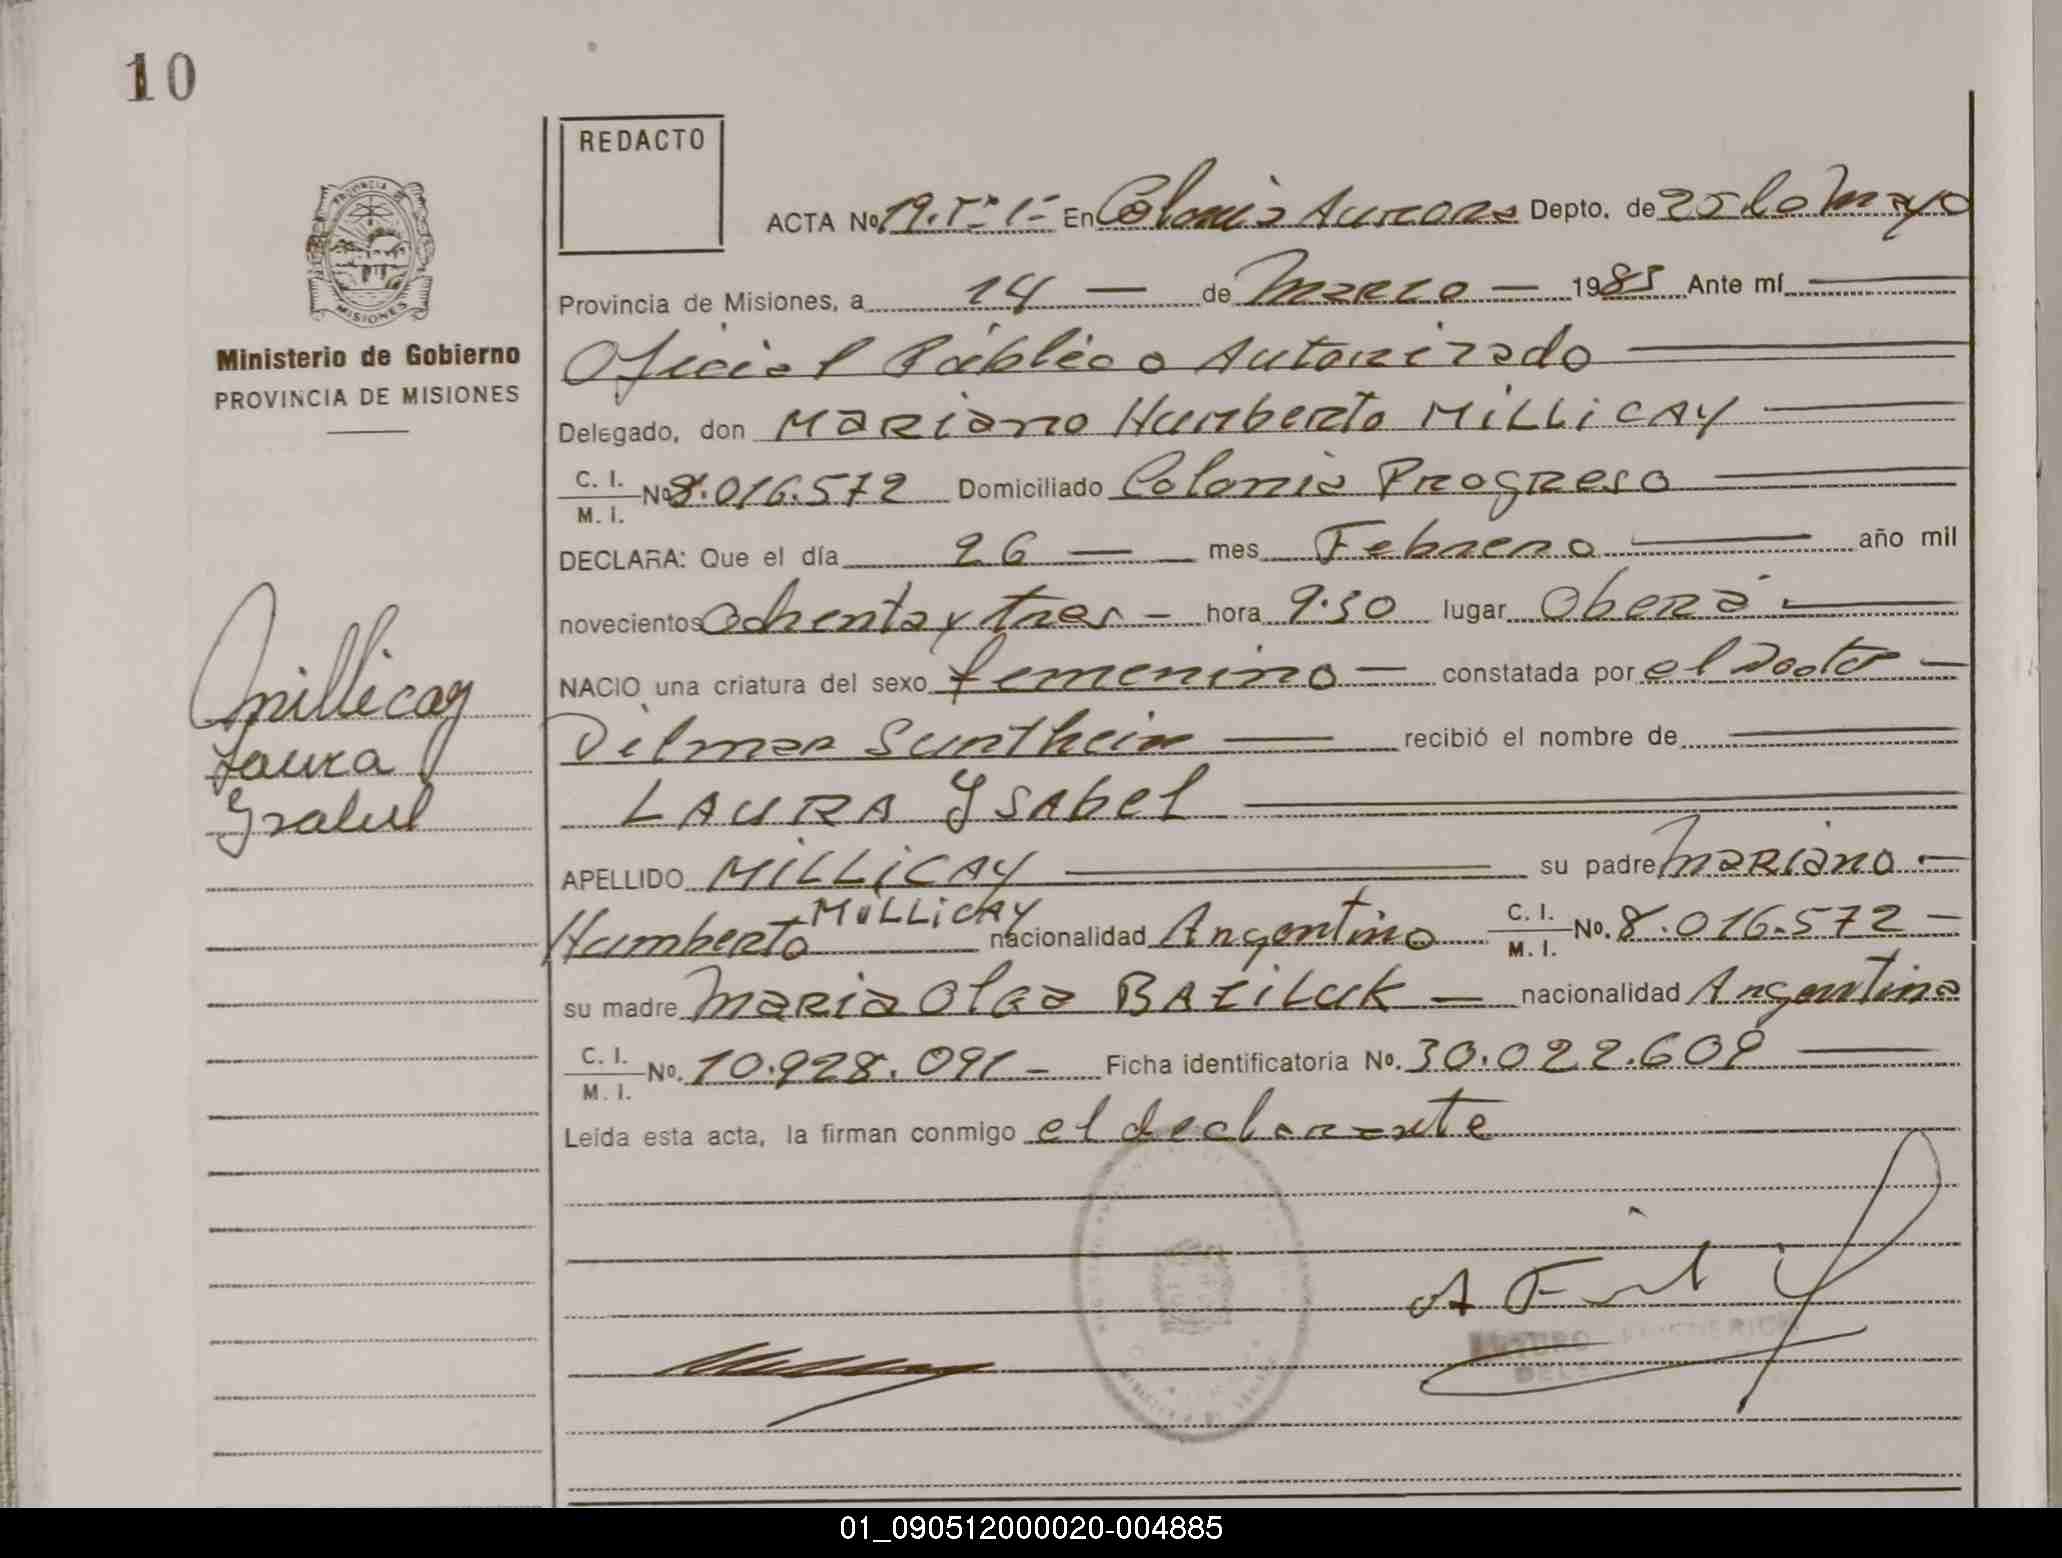 10
REDACTO
ACTA Nº 19.Tº 1º En Colonia Aurora Depto. de 25 de Mayo
PROVINCIA DE
MISIONES
Provincia de Misiones, a 14 — de Marzo — 1983 Ante mí
Ministerio de Gobierno
PROVINCIA DE MISIONES
Oficial Público Autorizado
Delegado, don Mariano Humberto MiLLiCAY
C. I.
M. I. Nº 8.016.572 Domiciliado Colonia Progreso
DECLARA: Que el día 26 — mes Febrero — año mil
novecientos Ochenta y tres - hora 9.30 lugar Oberá
NACIO una criatura del sexo femenino — constatada por el Doctor —
Dilmar Sunthein — recibió el nombre de
LAURA YSAbeL
Millicay
Laura
Ysabel
APELLIDO MiLLiCAY su padre Mariano
Humberto MiLLiCAY nacionalidad Argentino C. I. M. I. Nº. 8.016.572 —
su madre Maria Olga BAZiLuK — nacionalidad Argentina
C. I.
M. I. Nº. 10.928.091 - Ficha identificatoria Nº. 30.022.609
Leída esta acta, la firman conmigo el declarante
01_090512000020-004885